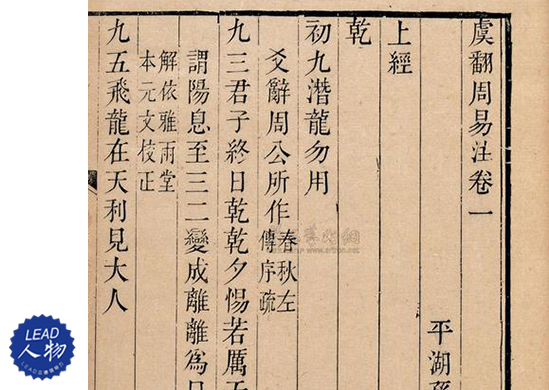 虞翻周易注卷一
平湖孫
上經
乾
初九潛龍勿用
爻辭周公所作春秋左
傳序疏
九三君子終日乾乾夕惕若厲无
謂陽息至三二變成離離為日
解依雅雨堂
本元文校正
九五飛龍在天利見大人
LEAD
人物